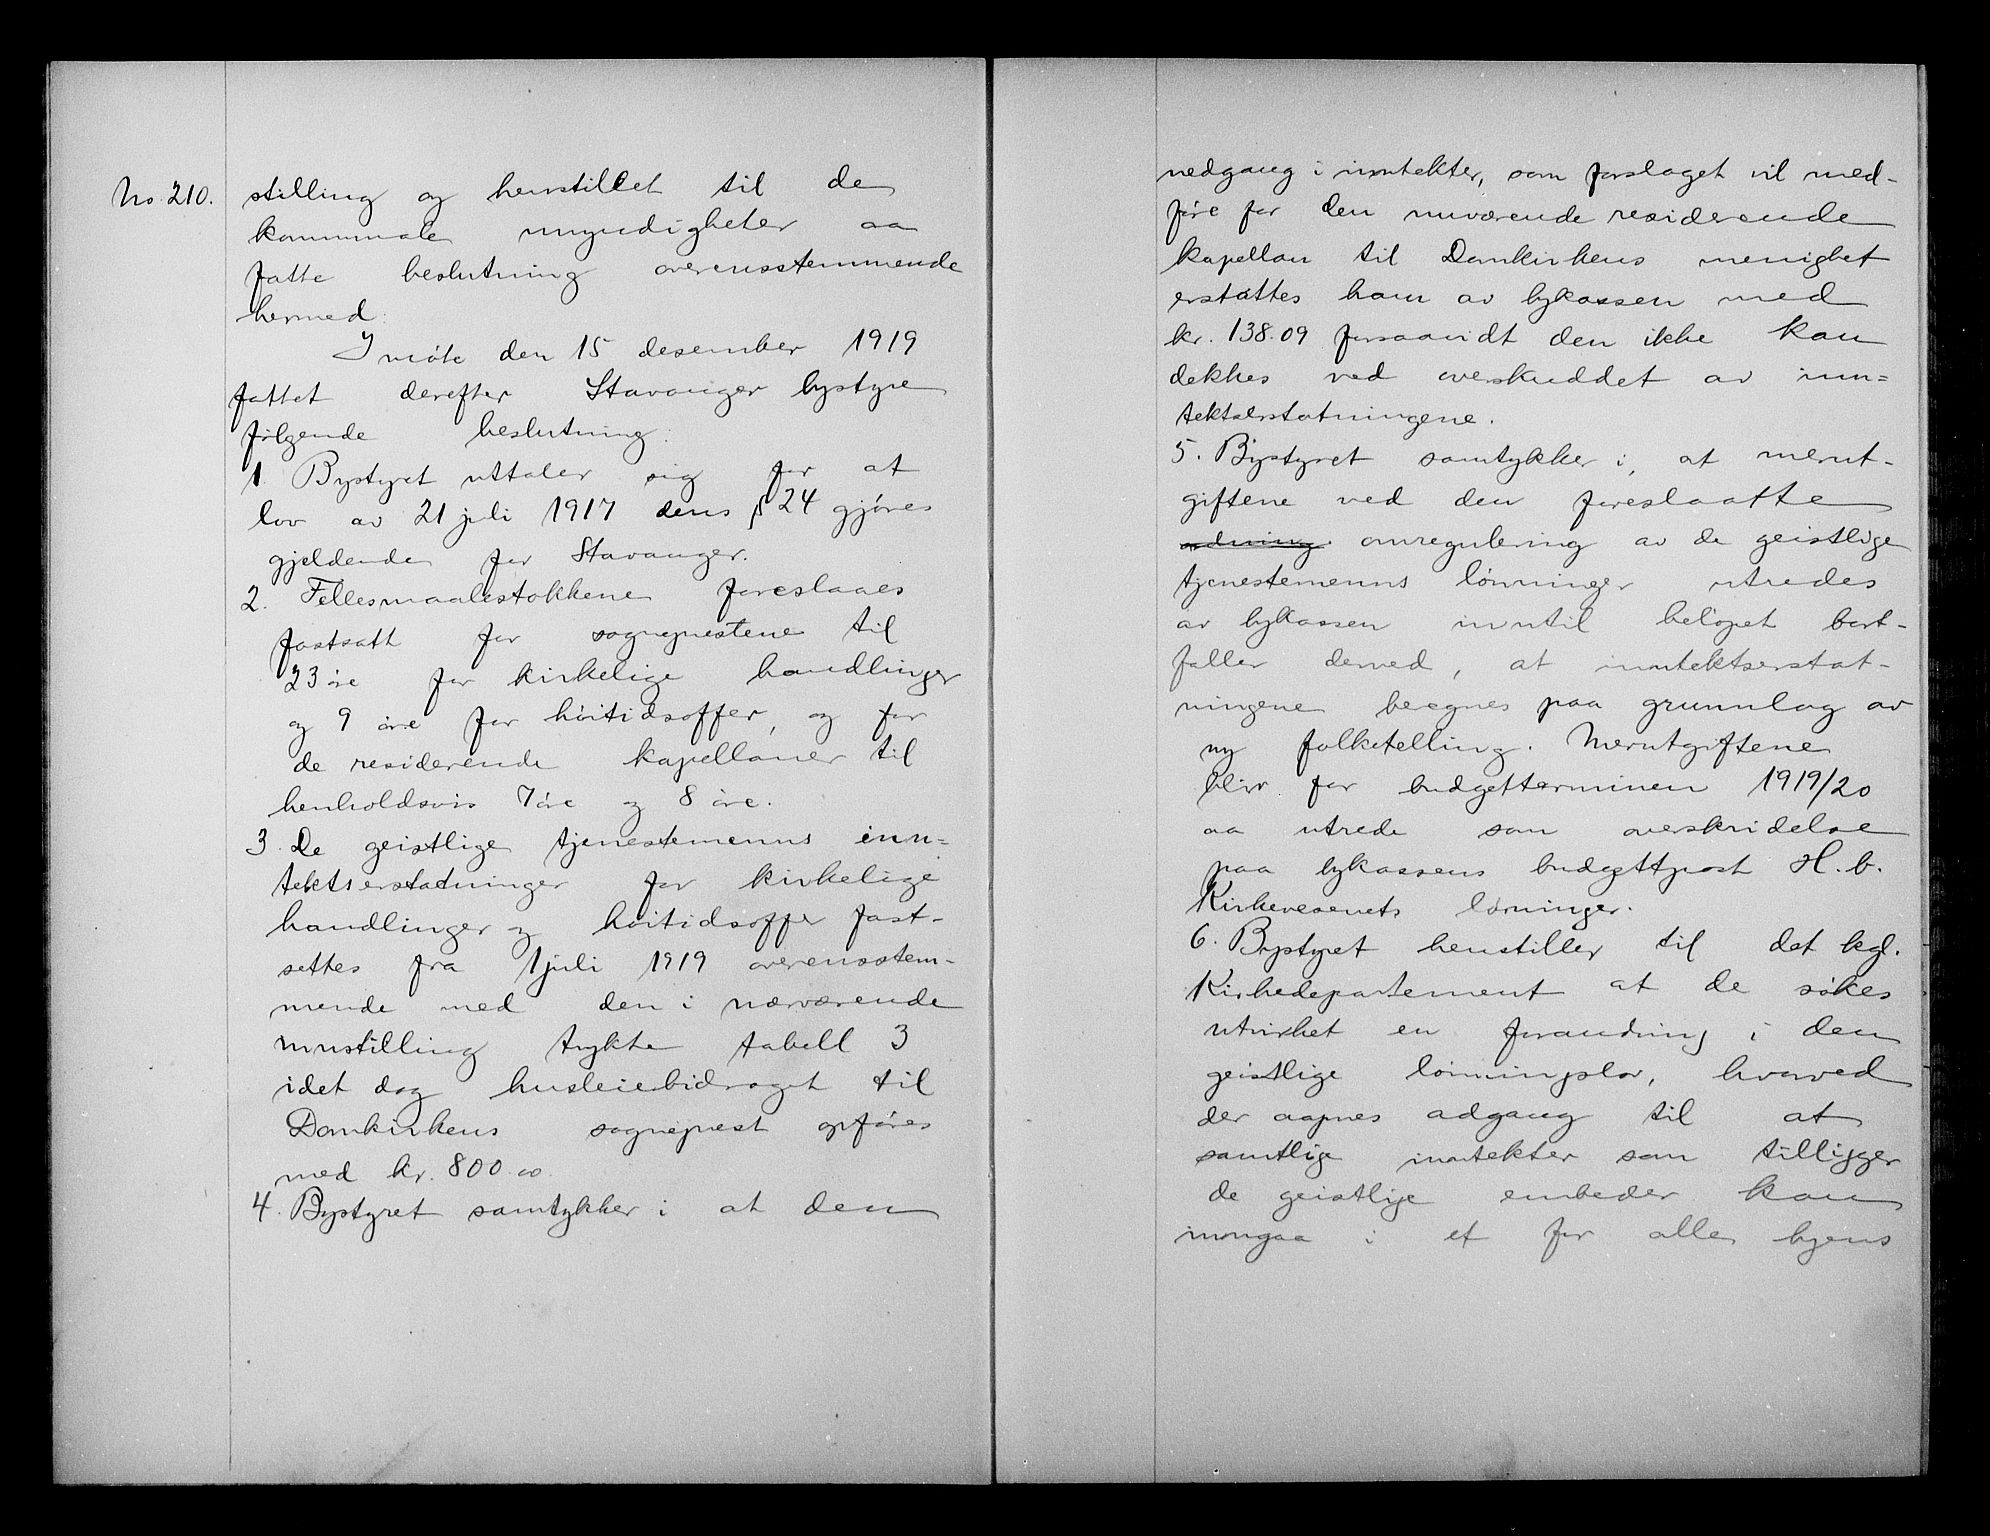 No. 210.
stilling og henstillet til de
kommunale myndigheter aa
fatte beslutning overensstemmende
hermed.
I møte den 15 desember 1919
fattet derefter Stavanger bystyre
følgende beslutning:
1. Bystyret uttaler sig for at
lov av 21 juli 1917 dens § 24 gjøres
gjeldende for Stavanger.
2. Fellesmaalestokkene foreslaaes
fastsatt for sogneprestene til
23 øre for kirkelige handlinger
og 9 øre for høitidsoffer, og for
de residerende kapellaner til
henholdsvis 7 øre og 8 øre.
3. De geistlige tjenestemenns inn=
tektserstatninger for kirkelige
handlinger og høitidsoffer fast-
settes fra 1 juli 1919 overensstem-
mende med den i nærværende
innstilling trykte tabell 3
idet dog husleiebidraget til
Domkirkens sogneprest opføres
med kr. 800.00
4. Bystyret samtykker i at den
nedgang i inntekter, som forslaget vil med-
føre for den nuværende residerende
kapellan til Domkirkens menighet
erstattes ham av bykassen med
kr. 138.09 forsaavidt den ikke kan
dekkes ved overskuddet av inn=
tektserstatningene.
5. Bystyret samtykker i, at merut-
giftene ved den foreslaatte
ordning omregulering av de geistlige
tjenestemenns lønninger utredes
av bykassen inntil beløpet bort-
faller derved, at inntektserstat-
ningene beregnes paa grunnlag av
ny folketelling. Merutgiftene
blir for budgetterminen 1919/20
aa utrede som overskridelse
paa bykassens budgettpost H. b.
Kirkevesenets lønninger.
6. Bystyret henstiller til det kgl.
Kirkedepartement at de søkes
utvirket en forandring i den
geistlige lønningslov, hvorved
der aapnes adgang til at
samtlige inntekter som tilligger
de geistlige embeder kan
inngaa i et for alle byens